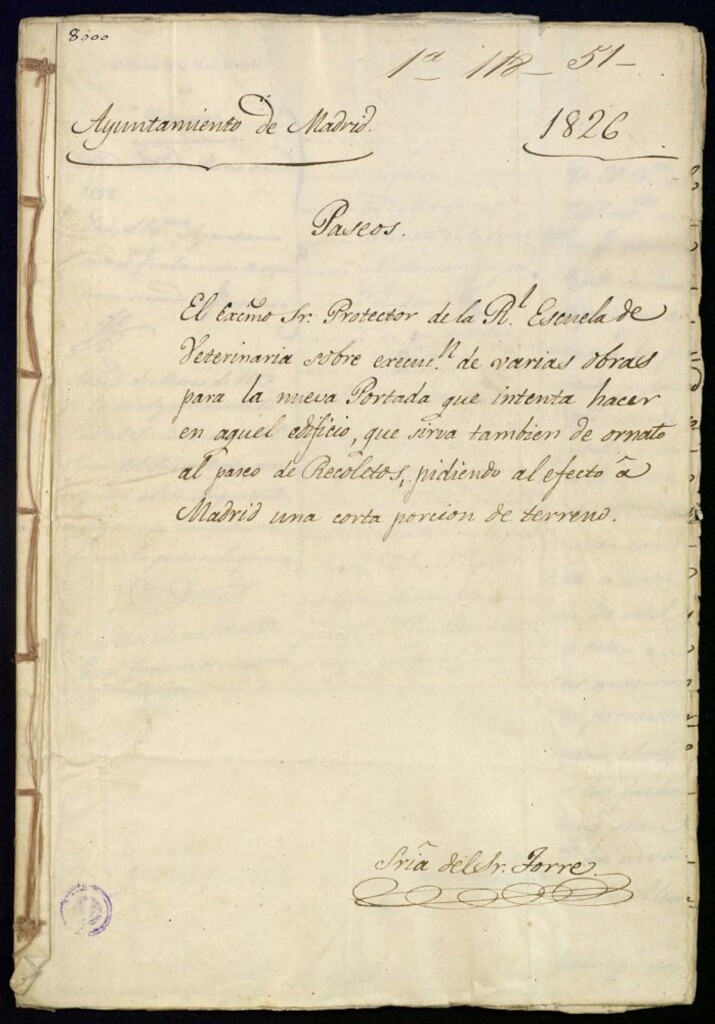 8000
1ª 118- 51-
Ayuntamiento de Madrid.
1826
Paseos.
El Excmo Sr. Protector de la Rl. Escuela de
Veterinaria sobre execun. de varias obras
para la nueva Portada que intenta hacer
en aquel edificio, que sirva tambien de ornato
al paseo de Recoletos, pidiendo al efecto á
Madrid una corta porcion de terreno.
Sría del Sr. Torre.